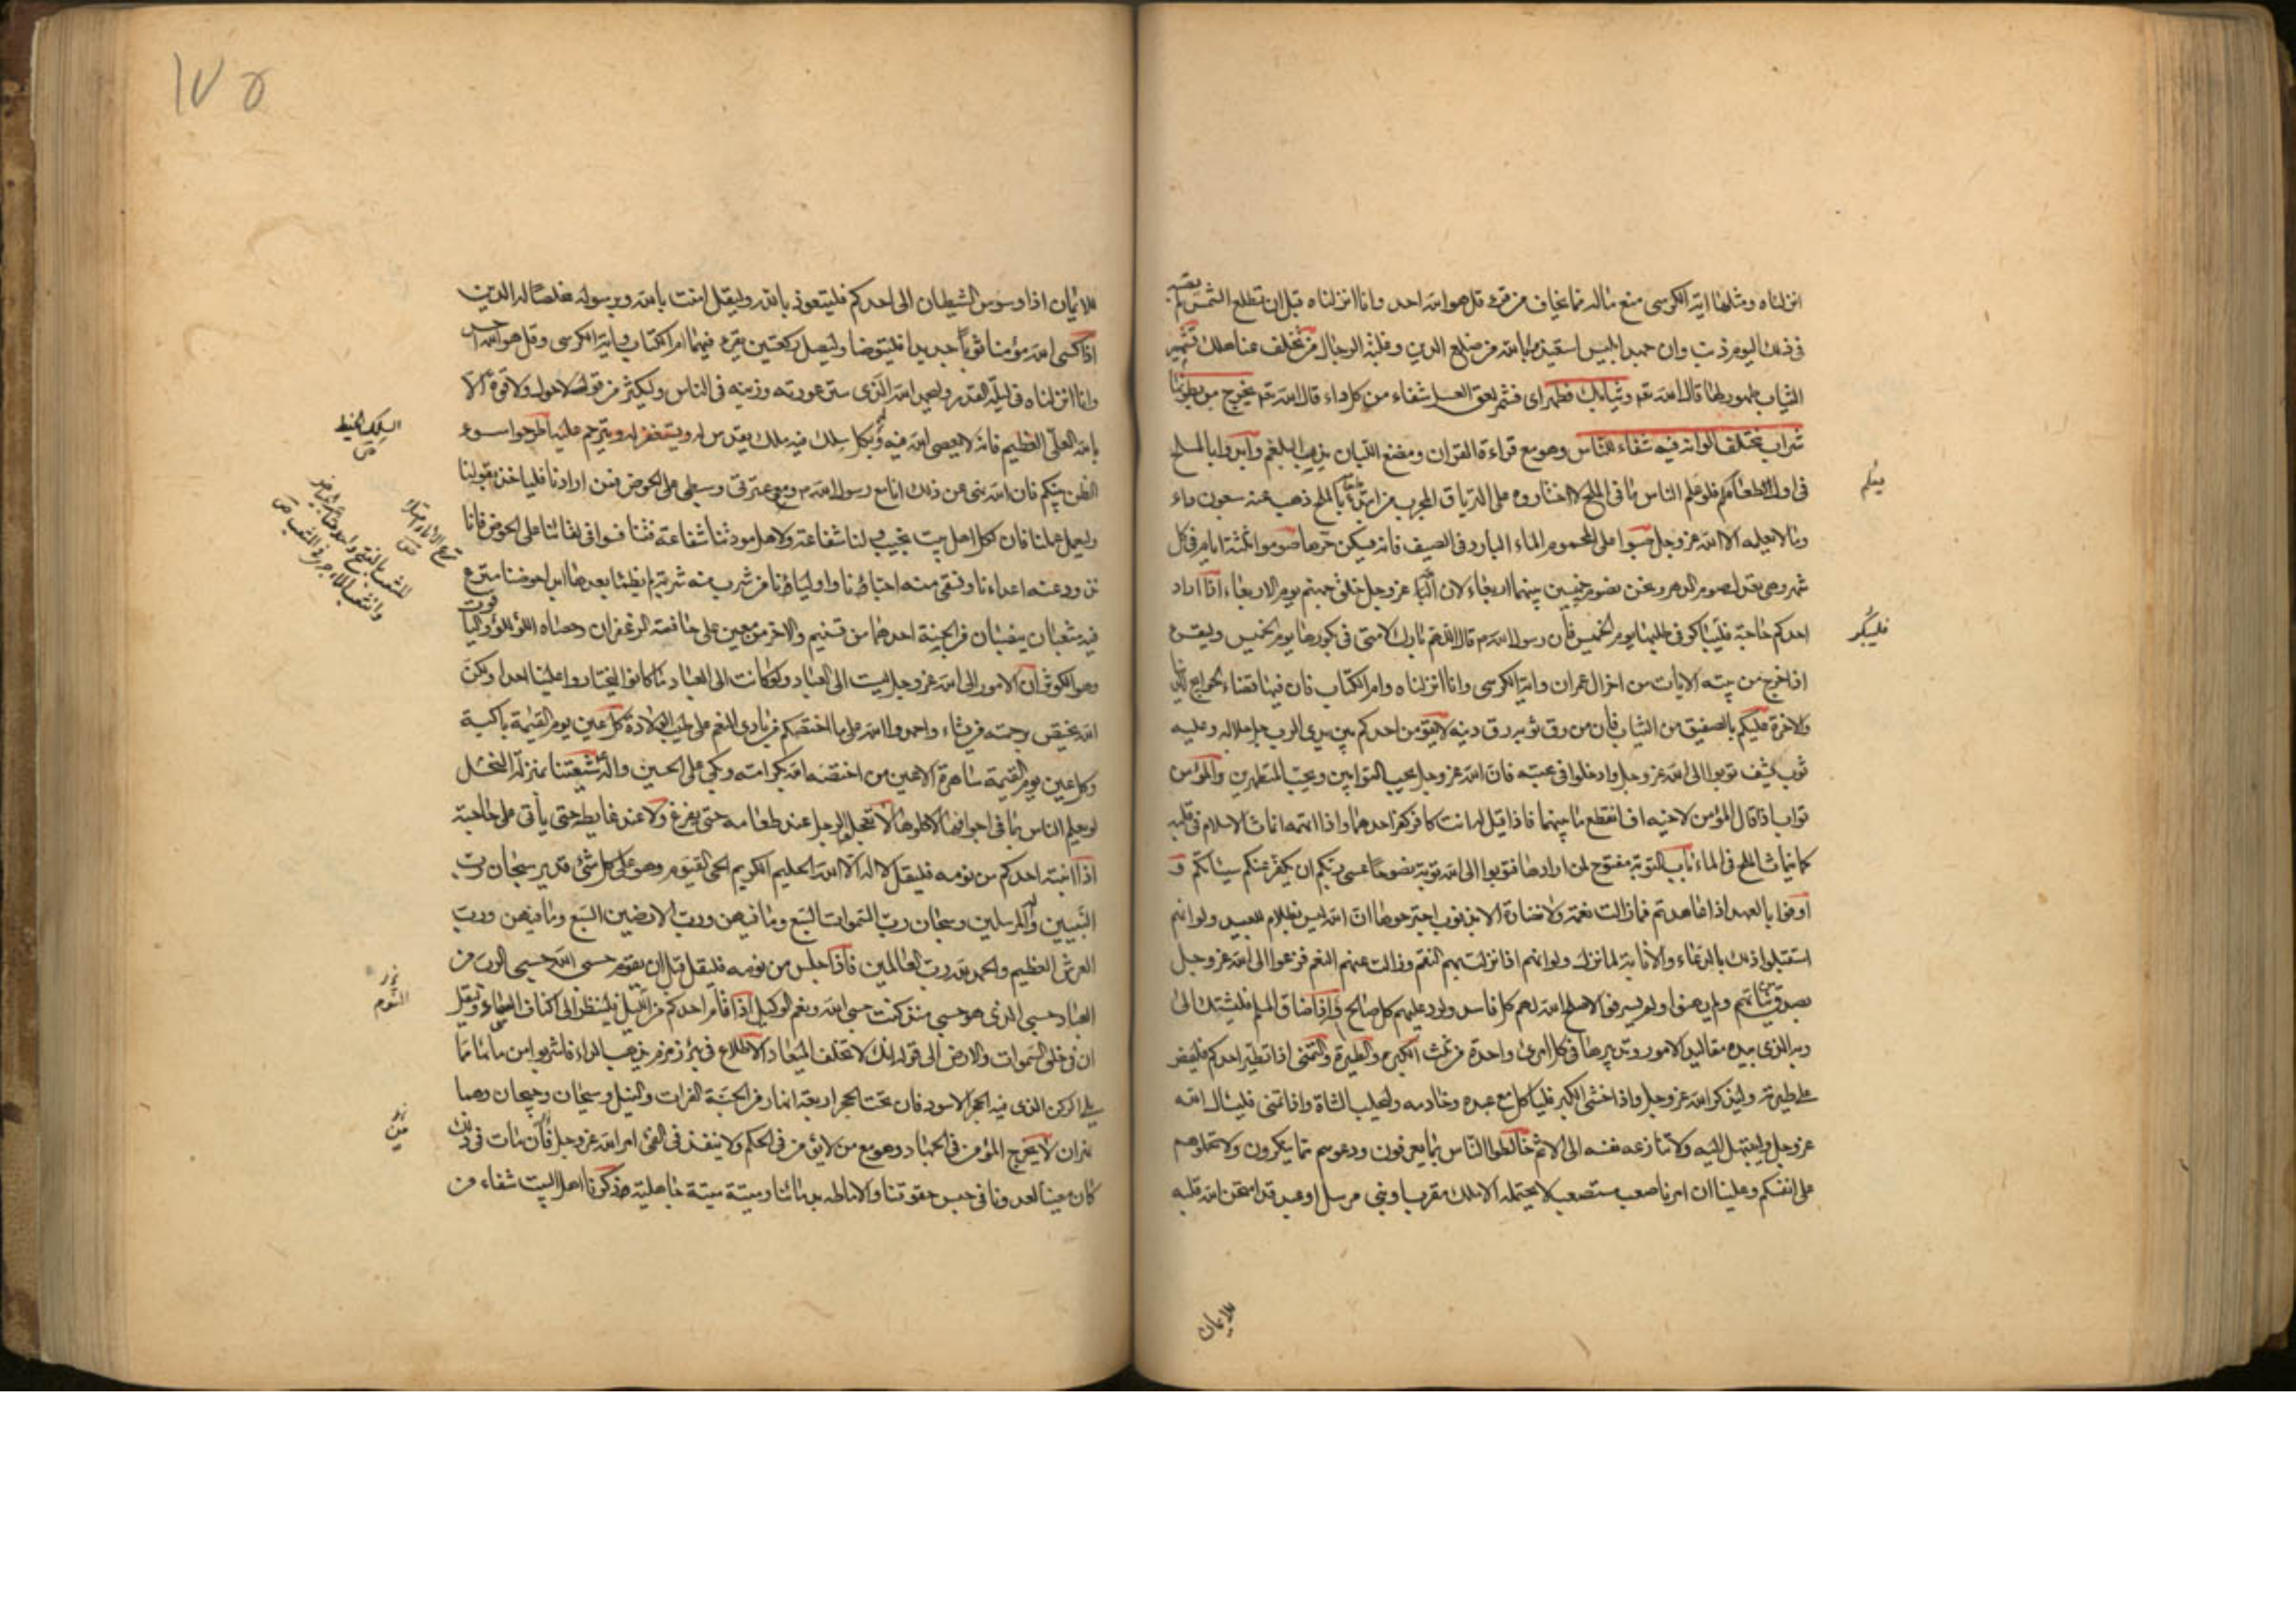 انزلناه ومثلها اية الكرسى منع ماله مما يخاف من قرء قل هو الله احد وانا انزلناه قبل ان تطلع الشمس لم يصبه
فى ذلك اليوم ذنب وان جهد ابليس استعيذوا بالله من ضلع الدين وغلبة الرجال من تخلف عنا هلك تشمير
الثياب طهور لها قال الله تع وثيابك فطهر اى فشمر لعق العسل شفاء من كل داء قال الله تع يخرج من بطونها
شراب مختلف الوانه فيه شفاء للناس وهو مع قراءة القران ومضغ اللبان يذيب البلغم وابدؤا بالملح
فى اول طعامكم فلو علم الناس ما فى الملح لاختاروه على الترياق المجرب من ابتدء طعامه بالملح ذهب عنه سبعون داء
وما لا يعلمه الا الله عز وجل صبوا على المحموم الماء البارد فى الصيف فانه يسكن حرها صوموا ثلثة ايام فى كل
شهر وهى تعدل صوم الدهر ونحن نصوم خميسين بينهما اربعاء لان الله عز وجل خلق جهنم يوم الاربعاء اذا اراد
احدكم حاجة فليباكر فى طلبها يوم الخميس فان رسول الله ص قال اللهم بارك لامتى فى بكورها يوم الخميس وليقرء
اذا خرج من بيته الايات من اخر ال عمران واية الكرسى وانا انزلناه وام الكتاب فان فيها قضاء لحوائج الدنيا
والاخرة عليكم بالصفيق من الثياب فان من رق ثوبه رق دينه لا يقومن احدكم بين يدى الرب جل جلاله وعليه
ثوب يشف توبوا الى الله عز وجل وادخلوا فى محبته فان الله عز وجل يحب التوابين ويحب المتطهرين والمؤمن
تواب اذا قال المؤمن لاخيه اف انقطع ما بينهما فاذا قيل له انت كافر كفر احدهما واذا اتهمه انماث الاسلام فى قلبه
كما ينماث الملح فى الماء باب التوبة مفتوح لمن ارادها فتوبوا الى الله توبة نصوحا عسى ربكم ان يكفر عنكم سيئاتكم و
اوفوا بالعهد اذا عاهدتم فما زالت نعمة ولا نضارة الا بذنوب اجترحوها ان الله ليس بظلام للعبيد ولو انهم
استقبلوا ذلك بالدعاء والانابة لما نزلت ولو انهم اذا نزلت بهم النقم وزالت عنهم النعم فزعوا الى الله عز وجل
بصدق نياتهم ولم يهنوا ولم يسرفوا لاصلح الله لهم كل فاسد ولرد عليهم كل صالح واذا ضاق المسلم فليشتك الى
ربه الذى بيده مقاليد الامور وتدبيرها فى كل امرئ واحدة من ثلث الكبر والطيرة والتمنى اذا تطير احدكم فليمض
على طيرته وليذكر الله عز وجل واذا خشى الكبر فلياكل مع عبده وخادمه وليحلب الشاة واذا تمنى فليسال الله
عز وجل وليبتهل اليه ولا تنازعه نفسه الى الاثم خالطوا الناس بما يعرفون ودعوهم مما ينكرون ولا تحملوهم
على انفسكم وعلينا ان امرنا صعب مستصعب لا يحتمله الا ملك مقرب او نبى مرسل او عبد قد امتحن الله قلبه
للايمان
فليباكر
للايمان اذا وسوس الشيطان الى احدكم فليتعوذ بالله وليقل امنت بالله وبرسوله مخلصا له الدين
اذا كسى الله مؤمنا ثوبا جديدا فليتوضا وليصل ركعتين يقرء فيهما ام الكتاب واية الكرسى وقل هو الله احد
وانا انزلناه فى ليلة القدر وليحمد الله الذى ستر عورته وزينه فى الناس وليكثر من قول لا حول ولا قوة الا
بالله العلى العظيم فانه لا يعصى الله فيه وله بكل سلك فيه ملك يقدس له ويستغفر له ويترحم عليه اطرحوا سوء
الظن بينكم فان الله نهى عن ذلك انا مع رسول الله ص ومعى عترتى وسبطى على الحوض فمن ارادنا فلياخذ بقولنا
وليعمل عملنا فان لكل اهل بيت نجيب ولنا شفاعة ولاهل مودتنا شفاعة فتنافسوا فى لقائنا على الحوض فانا
نذود عنه اعداءنا ونسقى منه احباءنا واولياءنا من شرب منه شربة لم يظمأ بعدها ابدا حوضنا مترع
فيه مثعبان ينصبان من الجنة احدهما من تسنيم والاخر من معين على حافتيه الزعفران وحصاه اللؤلؤ والياقوت
وهو الكوثر ان الامور الى الله عز وجل ليست الى العباد ولو كانت الى العباد ما كانوا ليختاروا علينا احدا ولكن
الله يختص برحمته من يشاء واحمدوا الله على ما اختصكم من بادى النعم على طيب الولادة كل عين يوم القيمة باكية
وكل عين يوم القيمة ساهرة الا عين من اختصه الله بكرامته وبكى على الحسين واله شيعتنا بمنزلة النحل
لو يعلم الناس ما فى اجوافها لاكلوها لا تعجلوا الرجل عند طعامه حتى يفرغ ولا عند غايطه حتى يأتى على حاجته
اذا انتبه احدكم من نومه فليقل لا اله الا الله الحليم الكريم الحى القيوم وهو على كل شئ قدير سبحان رب
النبيين واله المرسلين وسبحان رب السموات السبع وما فيهن ورب الارضين السبع وما فيهن ورب
العرش العظيم والحمد لله رب العالمين فاذا جلس من نومه فليقل قبل ان يقوم حسبى الله حسبى الرب من
العباد حسبى الذى هو حسبى منذ كنت حسبى الله ونعم الوكيل اذا قام احدكم من الليل فلينظر الى اكناف السماء وليقل
ان فى خلق السموات والارض الى قوله انك لا تخلف الميعاد الاطلاع فى بئر زمزم يذهب الداء فاشربوا من مائها مما
يلى الركن الذى فيه الحجر الاسود فان تحت الحجر اربعة انهار من الجنة الفرات والنيل وسيحان وجيحان وهما
نهران لا يخرج المؤمن فى الجهاد وهو مع من لا يؤمن فى الحكم ولا ينفذ فى الفئ امر الله عز وجل فان مات فى ذلك
كان معينا لعدونا فى حبس حقوقنا والاشاطة بدمائنا وميتته ميتة جاهلية ذكرنا اهل البيت شفاء من
السلك الخيط
النوم
من
١٧٥